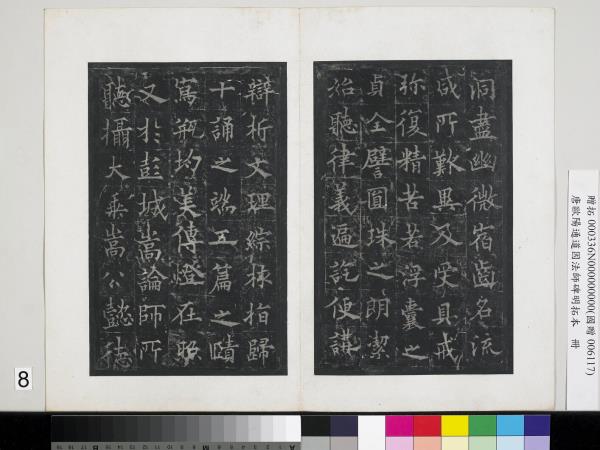 洞盡幽微宿齒名流
咸所歎異及受具戒
弥復精苦若浮囊之
貞全譬圓珠之朗潔
始聽律義遍訖便講
辯析文理綜核指歸
十誦之端五篇之賾
寫瓶均美傳燈在照
又於彭城嵩論師所
聽攝大乘嵩公懿德
贈拓 000336N000000000(國贈 006117)
唐歐陽通道因法師碑明拓本 冊
8